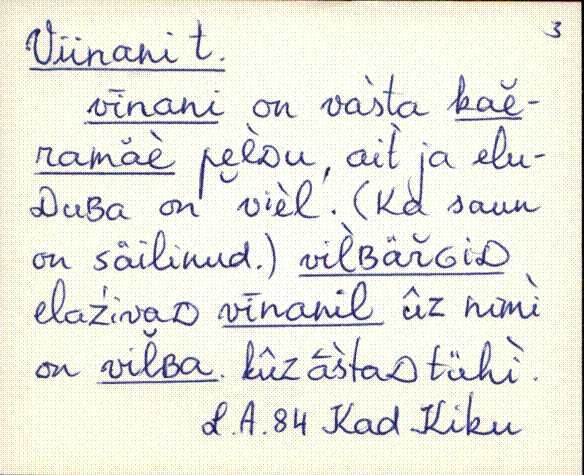 3
Viinani t.
vīnani on vàsta kaĕ-
ramăè pĕ̀lᴅu, aìt ja elu-
ᴅuʙa on vièl. (Ka saun
on säilinud.) vil̀ʙär̆ɢiᴅ
elaźivaᴅ vīnanil ûz nimì
on vil̆ʙa. kûz ās̀taᴅ tühì.
L.A.84 Kad Kiku